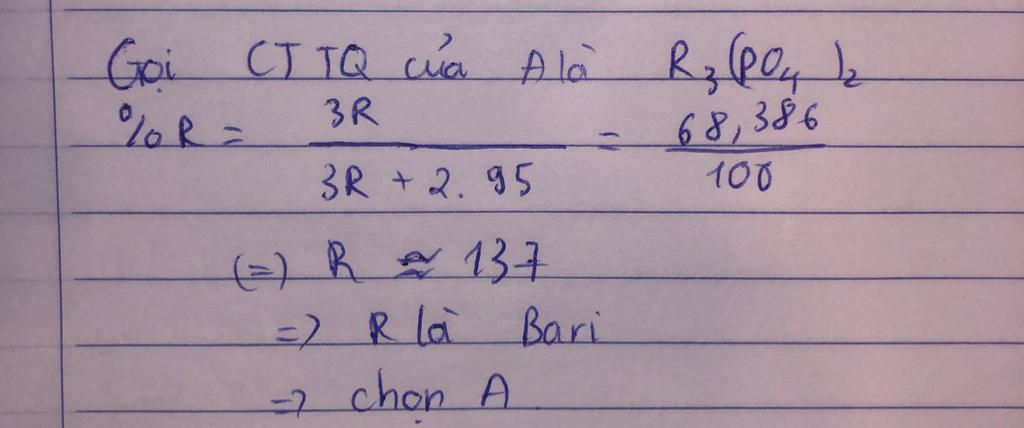 Gọi CTTQ của A là R₃(PO₄)₂
%R = 3R / (3R + 2.95) = 68,386 / 100
(=) R ≈ 137
=> R là Bari
=> chọn A